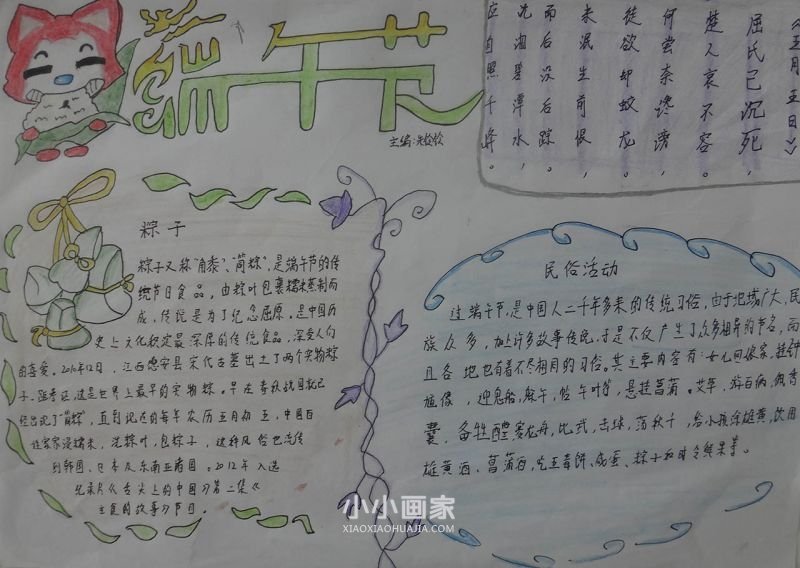 端午节
《五月五日》
屈氏已沉死,
楚人哀不容
何尝奈谗谤,
徒欲却蛟龙
未泯生前恨,
而后没后踪
沉湘碧潭水,
应自照千峰。
粽子
粽子又称"角黍"、"筒粽",是端午节的传
统节日食品,由粽叶包裹糯米蒸制而
成,传说是为了纪念屈原,是中国历
史上文化积淀最深厚的传统食品,深受人们
的喜爱。2010年12月,江西德安县宋代古墓出土了两个实物粽
子,这是世界上最早的实物粽。早在春秋战国就已
经出现了"筒粽",直到现在的每年农历五月初五,中国百
姓家家浸糯米,洗粽叶,包粽子,这种风俗也流传
到韩国、日本及东南亚诸国。2012年入选
纪录片《舌尖上的中国》第二集《
主食的故事》节目。
民俗活动
过端午节,是中国人二千年多来的传统习俗,由于地域广大,民
族众多,加上许多故事传统,于是不仅产生了众多相异的节名,而
且各地也有着不尽相同的习俗。其主要内容有:女儿回娘家,挂钟
馗像,迎鬼船,躲午,帖午叶符,悬挂菖蒲。艾草,游百病,佩香
囊,备牲醴,赛龙舟,比武,击球,荡秋千,给小孩涂雄黄,饮用
雄黄酒、菖蒲酒,吃五毒饼、咸蛋、粽子和时令鲜果等。
小小画家
XIAOXIAOHUAJIA.COM